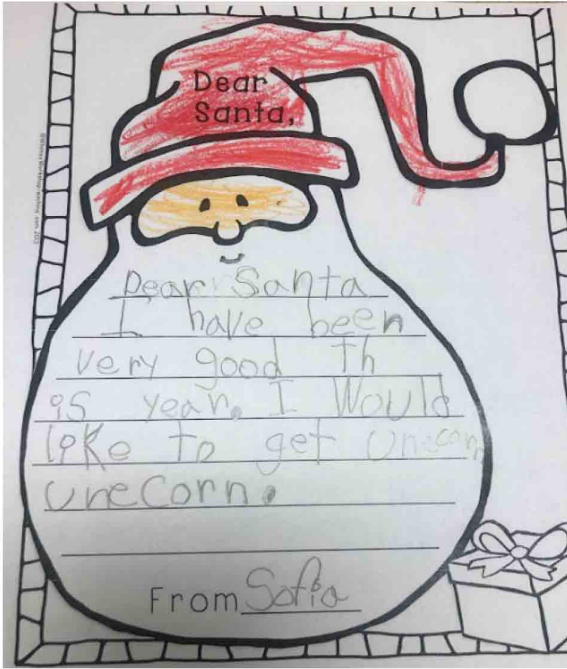 Dear
Santa,
Dear Santa
I have been
very good th
is year. I Would
like to get unecorn
unecorn.
From Sofia